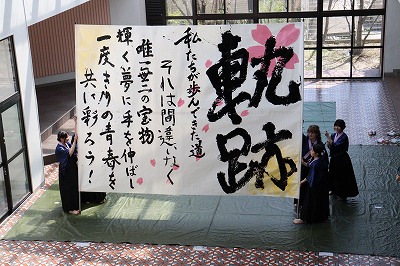 軌跡
私たちが歩んできた道
それは間違いなく
唯一無二の宝物
輝く夢に手を伸ばし
一度きりの青春を
共に彩ろう！